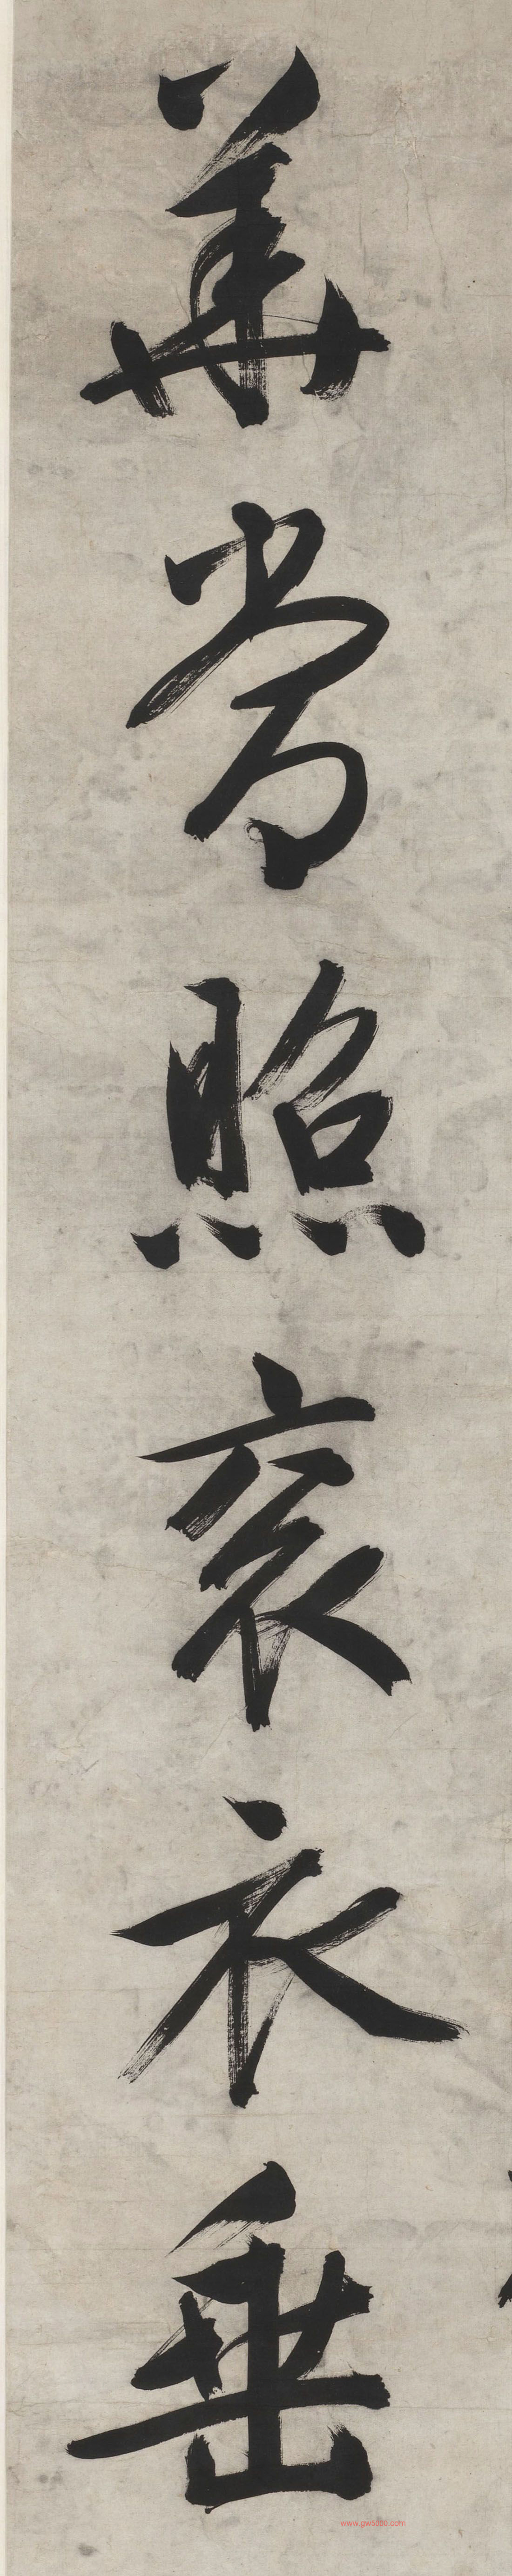 華常照衮衣垂
www.gw5000.com